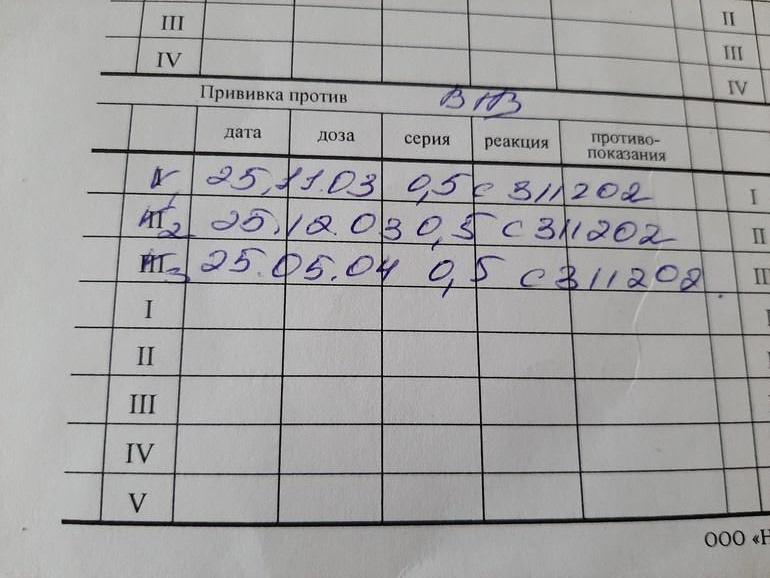 III II
IV III
IV
Прививка против ВГВ
дата доза серия реакция противо-
показания
V1 25.11.03 0,5 с 311202 I
V2 25.12.03 0,5 с 311202 II
V3 25.05.04 0,5 с 311202. III
I
II
III
IV
V
ООО «Н